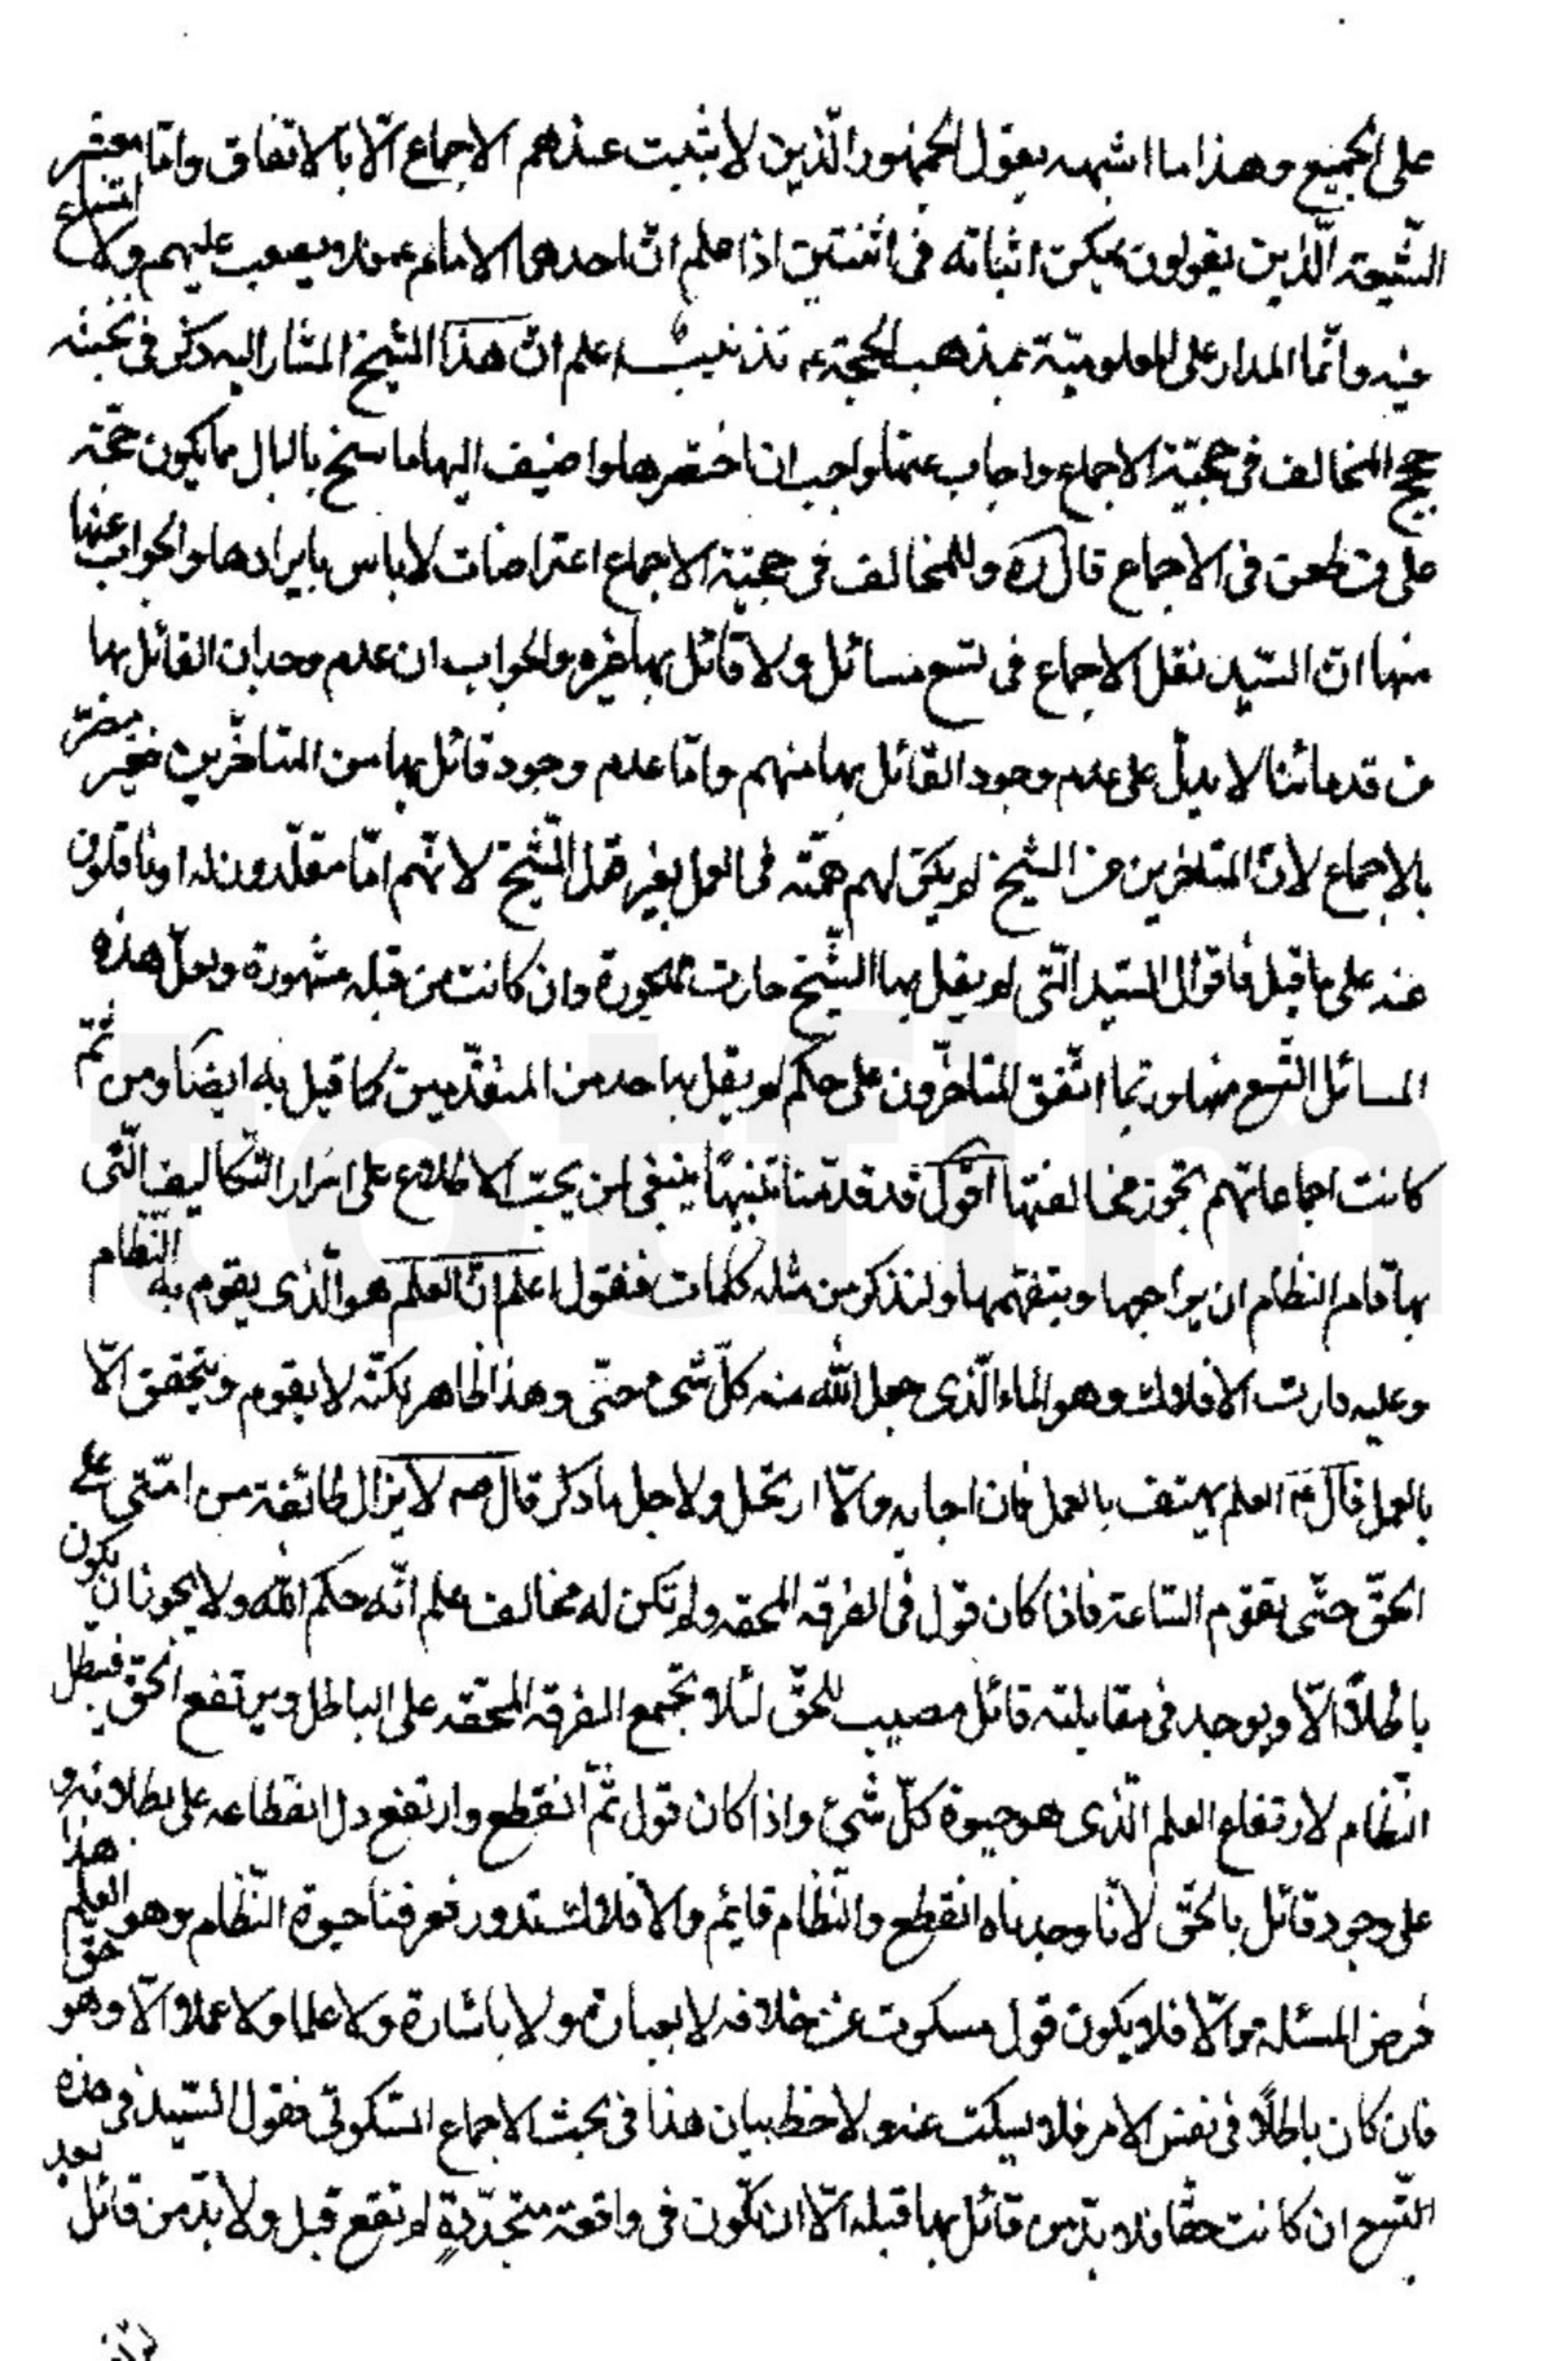 على الجميع وهذا ما اشبهه بقول الجمهور الّذين لا يثبت عندهم الاجماع الّا بالاتفاق وامّا معشر
الشّيعة الّذين يقولون يمكن اثباته فى اثنين اذا علم انّ احدهما الامام عم فلا يصعب عليهم ولا امتناع
فيه وانّما المدار على المعلوميّة بمذهب الحجّة ع تذنيب اعلم انّ هذا الشّيخ المشار اليه ذكر فى
حجج المخالف فى حجيّة الاجماع واجاب عنها واحب ان اختصرها واضيف اليها ما سنح بالبال مما يكون حجّة
على من طعن فى الاجماع قال ره وللمخالف فى حجيّة الاجماع اعتراضات لا باس بايرادها والجواب عنها
منها انّ السّيد نقل الاجماع فى تسع مسائل ولا قائل بها غيره والجواب ان عدم وجدان القائل بها
من قدمائنا لا يدلّ على عدم وجود القائل بها منهم وامّا عدم وجود قائل بها من المتاخّرين فغير مضرّ
بالاجماع لانّ المتاخرين عن الشيخ لم يكن لهم همّة فى العمل بغير قول الشّيخ لانّهم امّا مقلّدون له او ناقلون
عنه على ما قيل فاقوال السّيد الّتى لم يقل بها الشّيخ صارت مهجورة وان كانت من قبله مشهورة ولعلّ هذه
المسائل التّسع منها وربّما اتّفق المتاخّرون على حكم لم يقل به احد من المتقدّمين كما قيل به ايضًا ومن ثمّ
كانت اجماعاتهم تجوز مخالفتها اقول قد قدّمنا تنبيهًا ينبغى لمن يحبّ الاطلاع على اسرار التّكاليف الّتى
بها قام النظام ان يراجها ويتفهمها ولنذكر من مثله كلمات فنقول اعلم انّ العلم هو الّذى يقوم به النّظام
وعليه دارت الافلاك وهو الماء الّذى جعل الله منه كلّ شىء حتّى وهذا ظاهر لكنّه لا يقوم ويتحقق الّا
بالعمل قال ع العلم يهتف بالعمل فان اجابه والّا ارتحل ولاجل ما ذكر قال صم لا يزال طائفة من امّتى على
الحقّ حتّى تقوم السّاعة فاذا كان قول فى الفرقة المحقه ولم تكن له مخالف علم انّه حكم الله ولا يجوز ان يكون
باطلًا الّا ويوجد فى مقابلته قائل مصيب للحقّ لئلا تجتمع الفرقة المحقّه على الباطل ويرتفع الحقّ فيبطل
النّظام لارتفاع العلم الّذى هو حيوة كلّ شىء واذا كان قول ثمّ انقطع وارتفع دل انقطاعه على بطلانه و
على وجود قائل بالحقّ لانّا وجدناه انقطع والنّظام قايم والافلاك تدور فعرفنا حيوة النّظام وهو العلم هذا
فرض المسئلة والّا فلا يكون قول مسكوت عن خلافه لا بعبارة ولا باشارة ولا علما ولا عملا الّا وهو حقّ
فان كان باطلًا فى نفس الامر فلا يسكت عنه ولاحظ بيان هذا فى بحث الاجماع السّكوتى فقول السّيد فى هذه
التّسع ان كانت حقّا فلا بدّ من قائل بها قبله الّا ان تكون فى واقعة متجدّدة لم تقع قبل ولا بدّ من قائل بعد